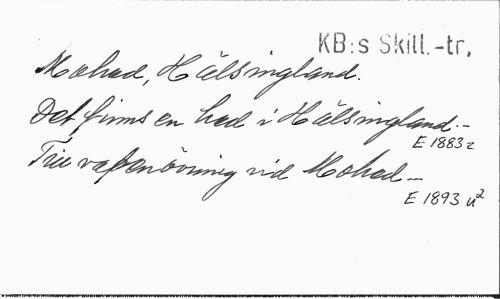 KB:s Skill.-tr.
Mohed, Hälsingland.
Det finns en hed i Hälsingland.-
E 1883 z
Till vapenövning vid Mohed.-
E 1893 u²